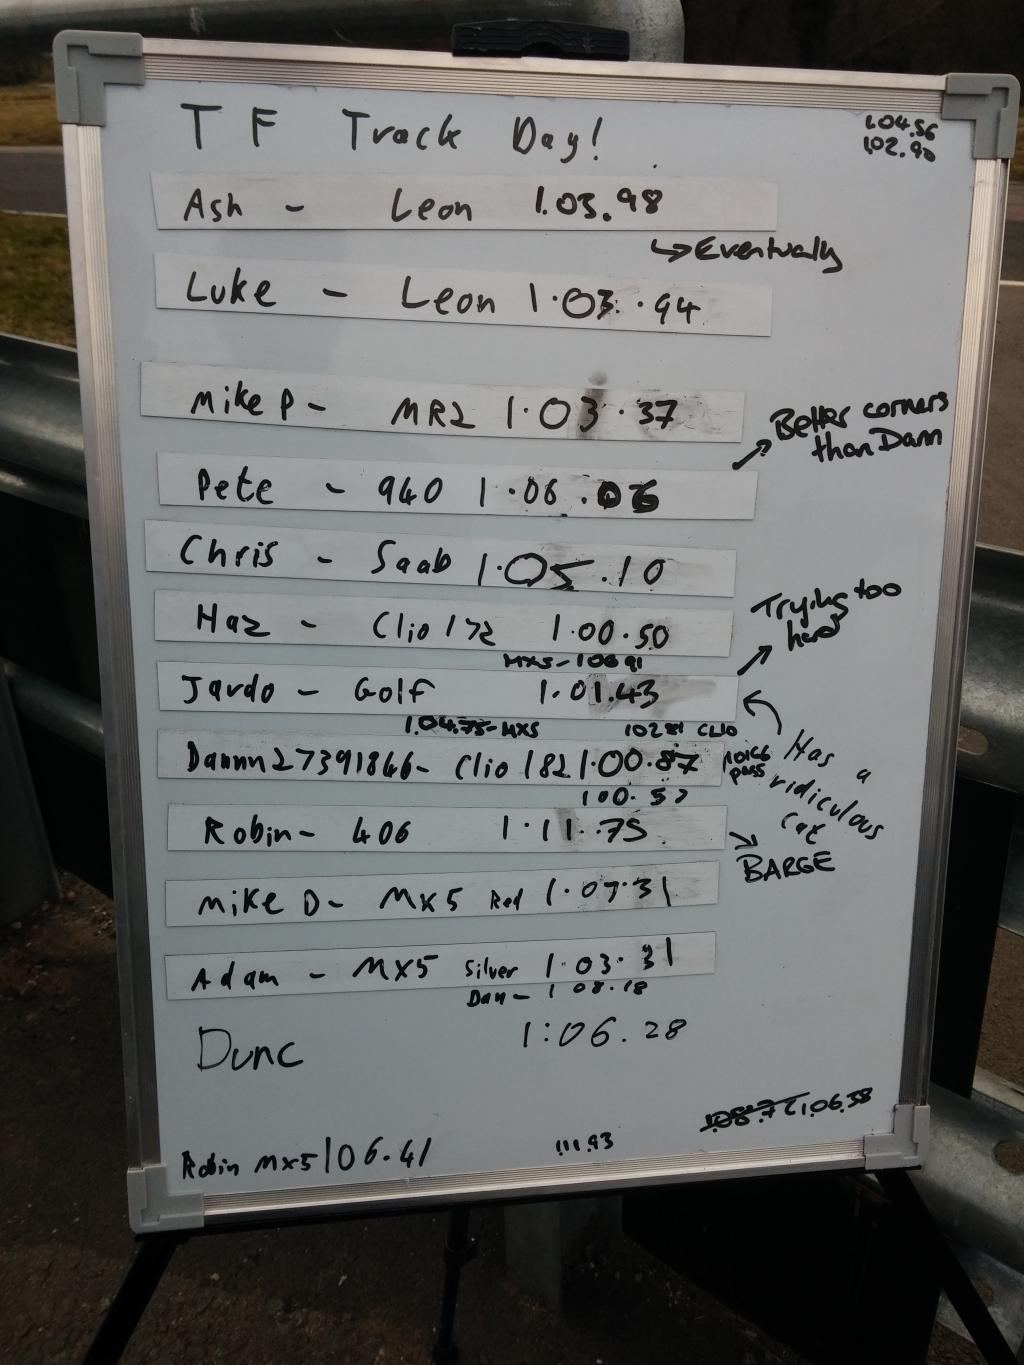 T F Track Day!
1.04.56
1.02.90
Ash - Leon 1.03.98
↳ Eventually
Luke - Leon 1.03.94
Mike P - MR2 1.03.37
Better corners
than Dann
Pete - 940 1.06.06
Chris - Saab 1.05.10
Haz - Clio 172 1.00.50
Trying too
hard
MX5 - 1 06 91
Jardo - Golf 1.01.43
1.04.75 - MX5
CLIO
Dannn27391846 - Clio 182 1.00.87
pass
Has a
ridiculous
cat
1 00.57
Robin - 406 1.11.75
BARGE
Mike D - MX5 Red 1.07.31
Adam - MX5 Silver 1.03.31
Dan - 1 08.18
Dunc 1:06.28
1.06.38
Robin MX5 1 06.41
1.11.93